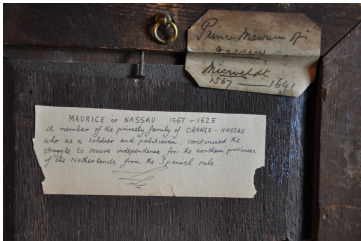 Prince Maurice of
Miereveldt
1567 — 1641
MAURICE OF NASSAU 1567 — 1625
A member of the princely family of ORANGE - NASSAU
who as a soldier and politician continued the
struggle to secure independence for the northern provinces
of the Netherlands from the Spanish rule.